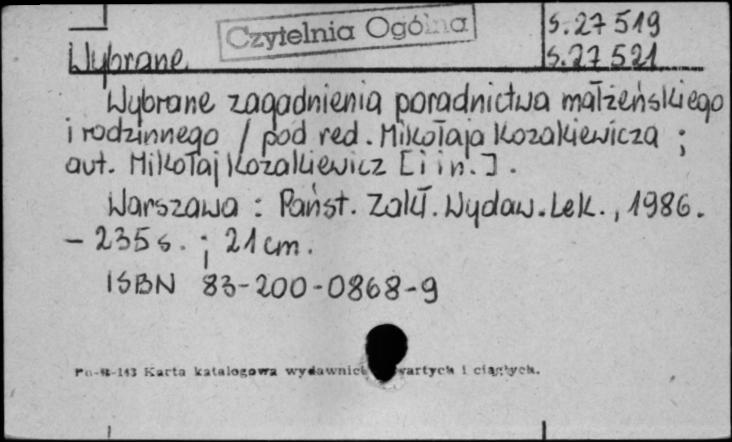 Czytelnia Ogólna
S.27 519
Wybrane
S.27 521
Wybrane zagadnienia poradnictwa małżeńskiego
i rodzinnego / pod red. Mikołaja Kozakiewicza ;
aut. Mikołaj Kozakiewicz [i in.].
Warszawa : Państ. Zakł. Wydaw. Lek., 1986.
- 235 s. ; 21 cm.
ISBN 83-200-0868-9
Karta katalogowa wydawnict wartych i ciągłych.